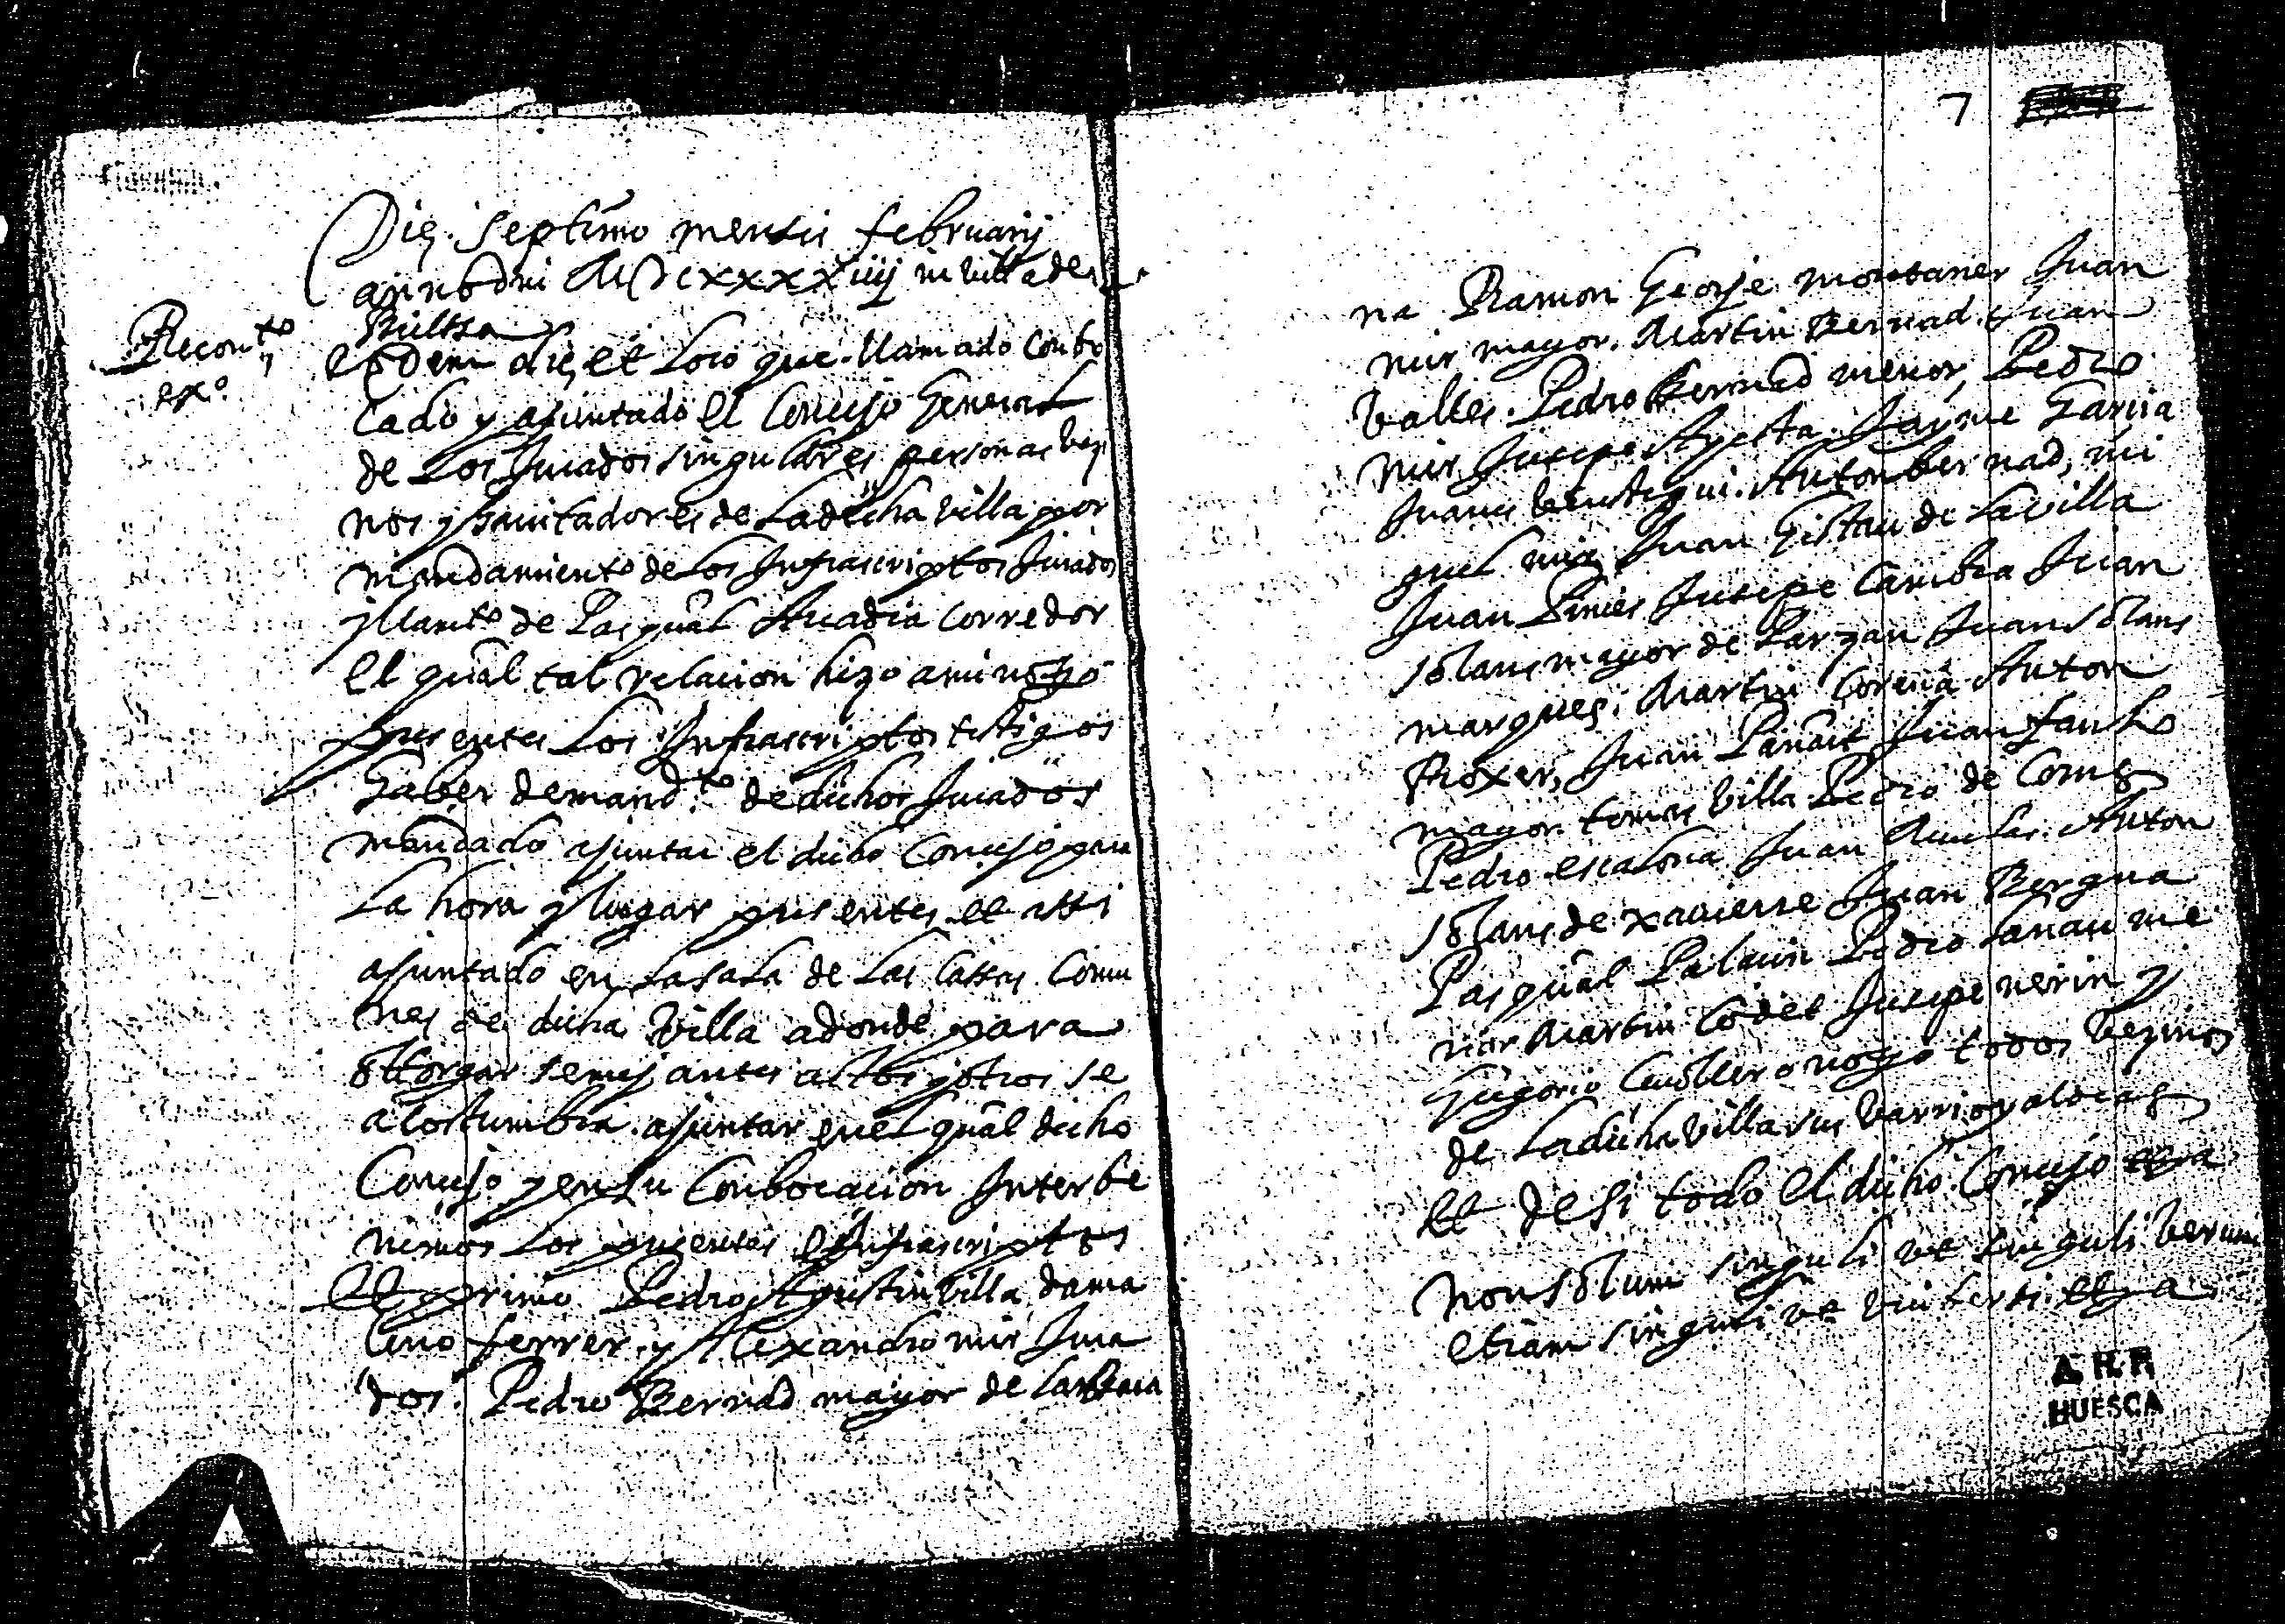 Recon.to
exº.
Die septimo mensis februarij
anno dni MDCxxxxiiij in villa de
Bielssa
Eodem die, et loco que llamado conbo
cado y ajuntado el Concejo General
de Los Jurados singulares personas bezi
nos y havitadores de La dicha villa por
mandamiento de Los Infrascriptos Jurados
y llam.to de Pasqual Acadia corredor
el qual tal relacion hizo a mi no.rio
presentes Los Infrascriptos testigos
Haber de mand.to de dichos Jurados
mandado ajuntar el dicho Concejo para
La hora y lugar presentes et assi
ajuntado en La sala de Las Cassas Comu
nes de dicha villa adonde para
ottorgar semejantes actos y otros se
acostumbra ajuntar en el qual dicho
Concejo y en su Conbocacion Interbe
nimos Los presentes e Infrascriptos
Et primo Pedro Agustin villa dama
ceno ferrer, y Alexandro mir Jura
dos. Pedro Bernad mayor de
7
na Ramon George montaner Juan
mir mayor. Martin Bernad. Juan
Valles. Pedro Bernad menor, Pedro
mir Jusepe Jayme Garcia
Anton bernad, mi
guel mir Juan Gistau de La villa
Juan Pinies Jusepe Cambra Juan
solans mayor de Parzan Juan solans
marques. Martin Anton
Juan Juan fanlo
mayor tomas villa Pedro de Coms
Pedro escalona Juan Anton
solans de xavierre Juan Bergua
Pasqual Palacin Pedro Lanau me
nor Martin Jusepe nerin y
Gregorio no.rio todos bezinos
de La dicha villa sus barrios y aldeas
et de si todo el dicho Concejo
non solum singuli ut singuli verum
etiam singuli ut universi et
A H P
HUESCA